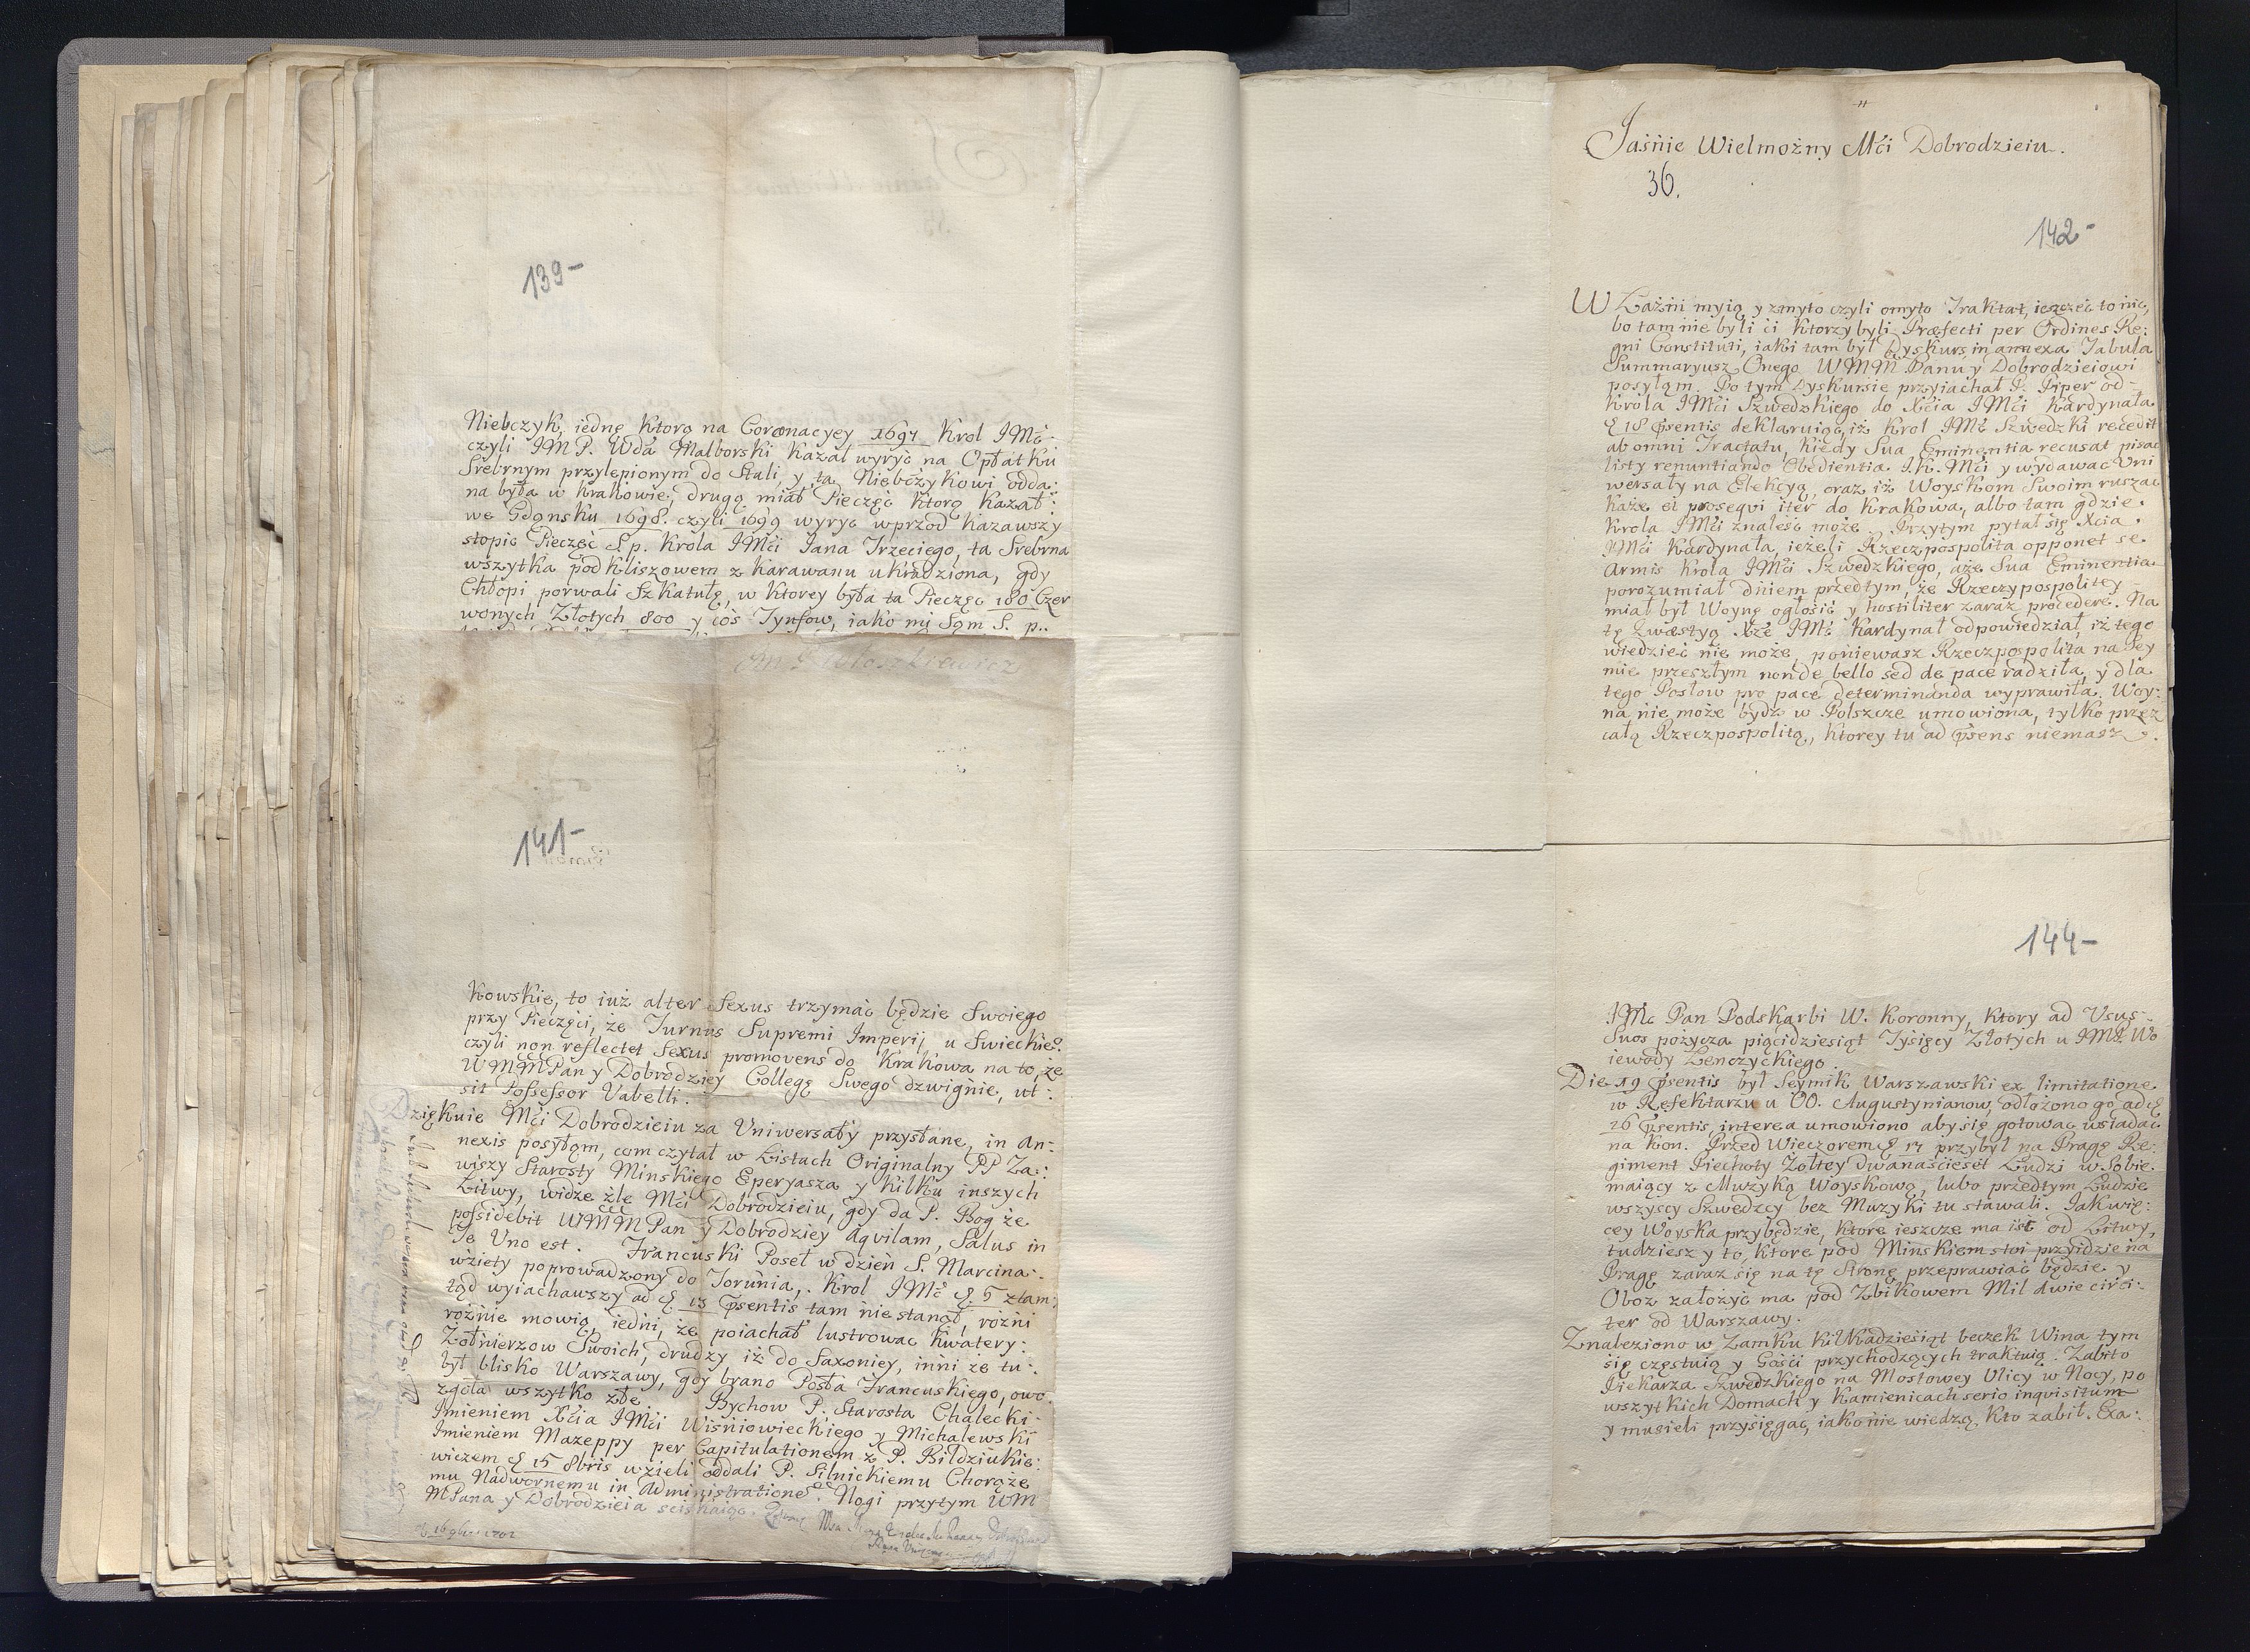 139-
Niebczyk, iednę Ktorą na Coronacyey 1697 Krol JMć
czyli JMP. Wda Malborski Kazał wyryć na Opłatku
Srebrnym przylepionym do Stali, y ta Niebczykowi odda:
na była w Krakowie, drugą miał Pieczęć Ktorą Kazał
we Gdąnsku 1698. czyli 1699 wyryć wprzod Kazawszy
stopić Pieczęć S. p. Krola JMći Jana Trzeciego, ta Srebrna
wszytka pod Kliszowem z Karawanu ukradziona, gdy
Chłopi porwali Szkatułę, w Ktorey była ta Pieczęć 180 Czer
wonych Złotych 800 y coś Tynfow, iako mi Sąm S. p.
141-
Kowskie, to iuż alter Sexus trzymać będzie Swoiego
przy Pieczęci, że Turnus Supremi Imperij u Swieckie?
czyli non reflectet Sexus promovens do Krakowa na to, że
WMMPan y Dobrodziey Collegę Swego dzwignie, ut
sit Possessor Vabelli.
Dziękuie Mći Dobrodzieiu za Uniwersały przysłane, in An-
nexis posyłąm, com czytał w Listach Originalny PP Za:
wiszy Starosty Minskiego Eperyasza y Kilku inszych
Litwy, widze źle Mći Dobrodzieiu, gdy da P. Bog że
possidebit WMMPan y Dobrodziey Aqvilam, Salus in
Te Uno est. Francuski Poseł w dzień S. Marcina
wzięty poprowadzony do Torunia, Krol JMć d. 5 ztam:
tąd wyiachawszy ad d. 13 psentis tam nie stanął, rożni
rożnie mowią, iedni, że poiachał lustrowac Kwatery
Zołnierzow Swoich, drudzy iż do Saxoniey, inni że tu
był blisko Warszawy, gdy brano Posła Francuskiego, owo
zgoła wszytko złe. Bychow P. Starosta Chalecki
Imieniem Xćia JMći Wiśniowieckiego y Michalewski
Imieniem Mazeppy per Capitulationem z P. Bildziukie:
wiczem d. 15 8bris wzieli oddali P. Silnickiemu Chorąże
mu Nadwornemu in Administratione. Nogi przytym WM
MPana y Dobrodzieia sciskaiąc.
d. 16 9bris 1702
Jaśnie Wielmożny Mći Dobrodzieiu.
36.
142-
W Łaźni myią y zmyto czyli omyto Traktat, ieszcze to nic,
bo tam nie byli ći Ktorzy byli Præfecti per Ordines Re:
gni Constituti, iaki tam był Dyskurs, in annexa Tabula
Summaryusz Onego WMM Panu y Dobrodzieiowi
posyłąm. Po tym Dyskursie przyiachał P. Piper od
Krola JMći Szwedzkiego do Xćia JMći Kardynała
d. 18 psentis deklaruiąc, iż Krol JMć Szwedzki recedit
ab omni Tractatu, Kiedy Sua Eminentia recusat pisać
listy renuntiando Obedientia J.K.Mći y wydawać Uni
wersały na Elekcyą, oraz iż Woyskom Swoim ruszać
Każe et prosequi iter do Krakowa, albo tam gdzie
Krola JMći znaleść może. Przytym pytał się Xcia
JMći Kardynała, ieżeli Rzeczpospolita opponet se
armis Krola JMći Szwedzkiego, aże Sua Eminentia
porozumiał dniem przedtym, że Rzeczypospolitey
miał był Woynę ogłosić y hostiliter zaraz procedere. Na
tę Qwæstyą Xże JMć Kardynał odpowiedział, iż tego
wiedzieć nie może, ponieważ Rzeczpospolita na Sey
mie przeszłym non de bello sed de pace radziła, y dla
tego Posłow pro pace determinanda wyprawiła. Woy:
na nie może bydź w Polszcze umowiona, tylko przez
całą Rzeczpospolitą, Ktorey tu ad psens niemasz.
144-
JMć Pan Podskarbi W. Koronny, Ktory ad Usus
Suos pożycza pięcidziesiąt Tysięcy Złotych u JMP. Wo
iewody Łęnczyckiego.
Die 19 psentis był Seymik Warszawski ex limitatione
w Refektarzu u OO. Augustynianow, odłożono go ad d.
26 psentis, interea umowiono aby się gotować wsiadać
na Koń. Przed Wieczorem d. 17 przybył na Pragę Re:
giment Piechoty Żołtey dwanaścieset Ludzi w Sobie
maiący z Muzyką Woyskową, lubo przedtym Ludzie
wszyscy Szwedzcy bez Muzyki tu stawali. Jak wię:
cey Woyska przybędzie, Ktore ieszcze ma iść od Litwy,
tudziesz y to, Ktore pod Minskiem stoi przyidzie na
Pragę zaraz się na tę Stronę przeprawiać będzie y
Oboz założyć ma pod Zbikowem Mil dwie circi:
ter od Warszawy.
Znaleziono w Zamku Kilkadziesiąt beczek Wina tym
się częstuią y Gośći przychodzących traktuią. Zabito
Piekarza Szwedzkiego na Mostowey Ulicy w Nocy, po
wszytkich Domach y Kamienicach serio inquisitum
y musieli przysięgać, iako nie wiedzą, Kto zabił. Exa: